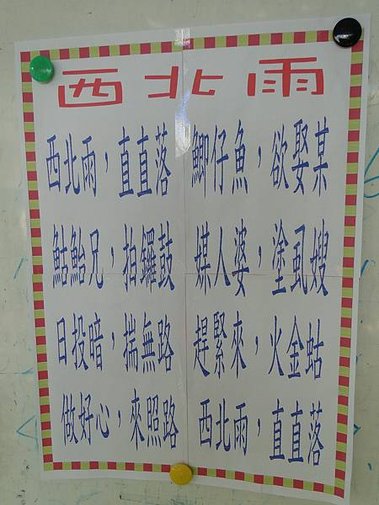 西北雨
西北雨，直直落　鯽仔魚，欲娶某
鮕鮘兄，拍鑼鼓　媒人婆，塗虱嫂
日投暗，揣無路　趕緊來，火金蛄
做好心，來照路　西北雨，直直落